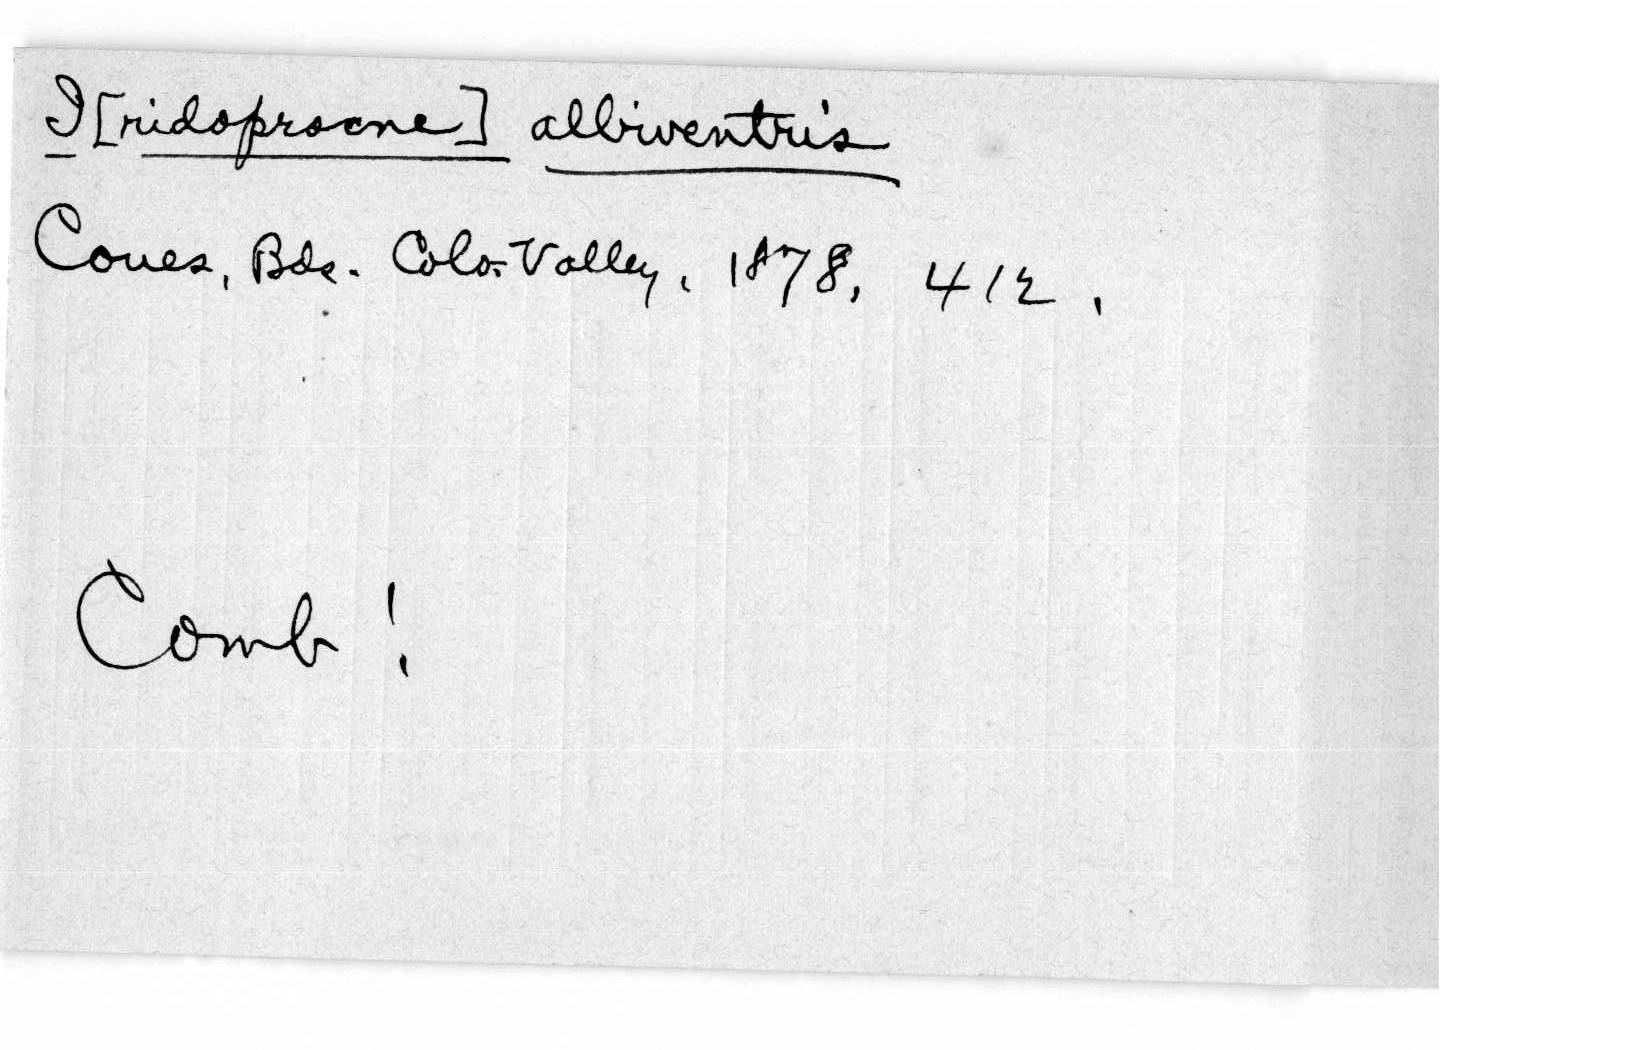 I[ridoprocne] albiventris
Coues, Bds. Colo. Valley, 1878, 412.
Comb!